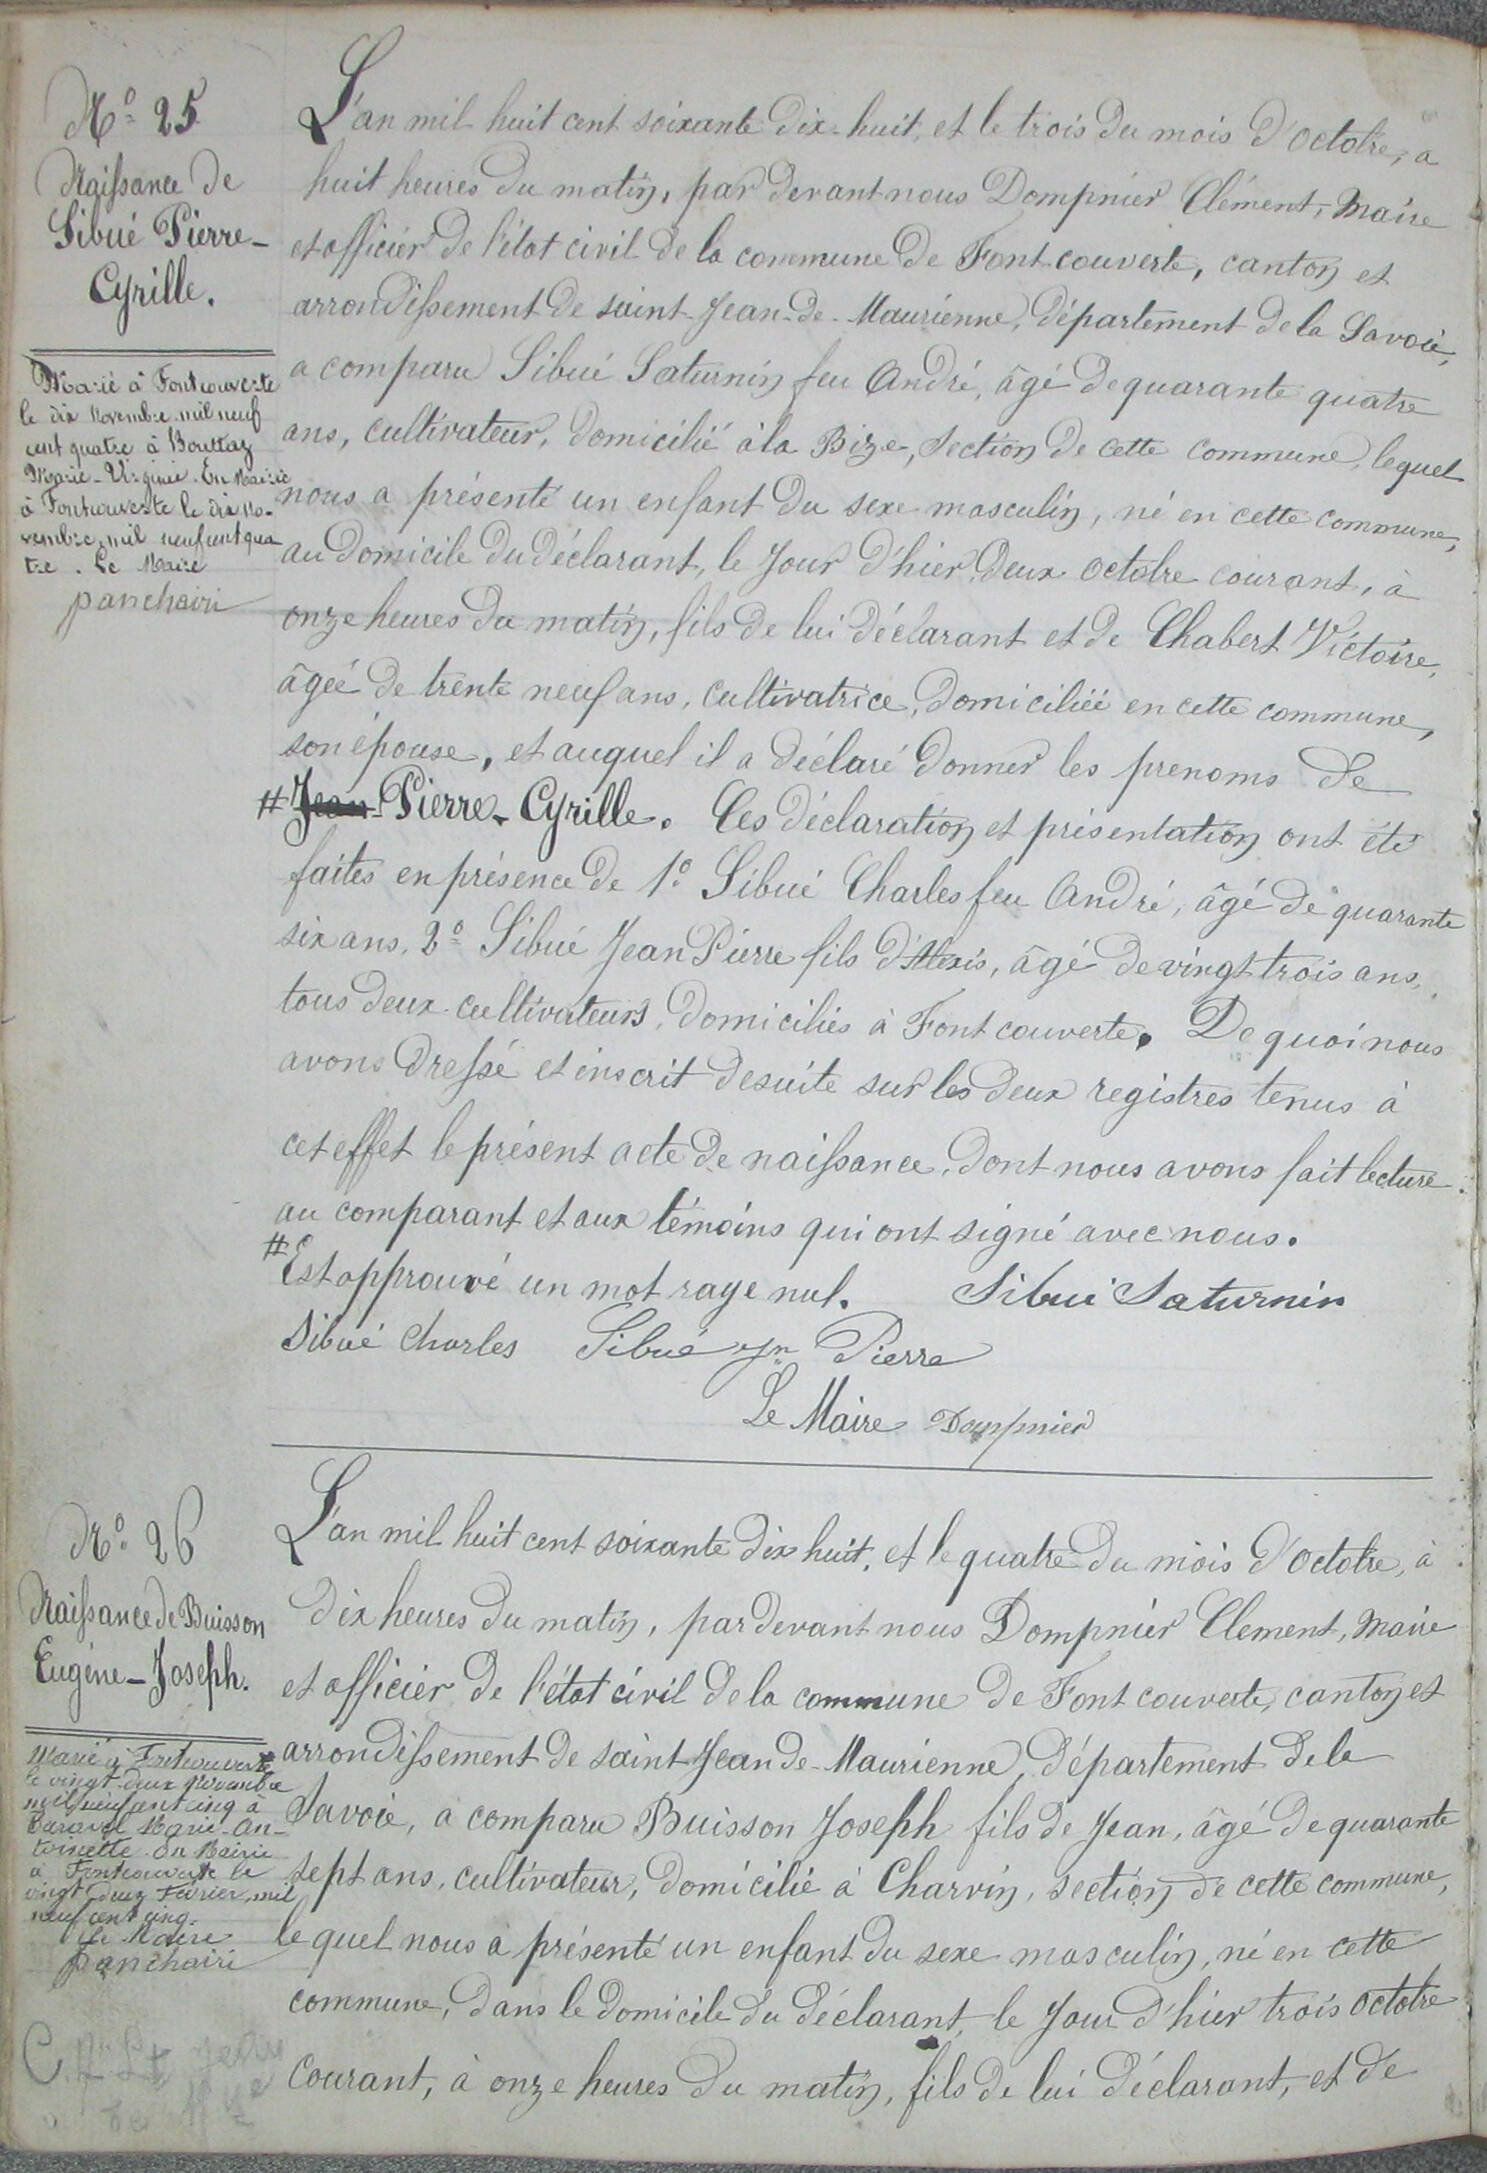 N.° 25
Naissance de
Sibué Pierre-
Cyrille.
Marié à Fontcouverte
le dix Novembre mil neuf
cent quatre à Bouttaz
Marie-Virginie. En Mairie
à Fontcouverte le dix No-
vembre mil neuf cent qua
tre. Le Maire
L'an mil huit cent soixante dix-huit, et le trois du mois d'octobre, a
huit heures du matin, par devant nous Dompnier Clément, Maire
et officier de l'état civil de la commune de Fontcouverte, canton et
arrondissement de saint-Jean-de-Maurienne, département de la Savoie,
a comparu Sibué Saturnin feu André, âgé de quarante quatre
ans, cultivateur, domicilié à la Bize, section de cette commune, lequel
nous a présenté un enfant du sexe masculin, né en cette commune,
au domicile du déclarant, le jour d'hier deux octobre courant, à
onze heures du matin, fils de lui déclarant et de Chabert Victoire,
âgée de trente neuf ans, cultivatrice, domiciliée en cette commune,
son épouse, et auquel il a déclaré donner les prenoms de
# Jean-Pierre-Cyrille. Ces déclaration et présentation ont été
faites en présence de 1° Sibué Charles feu André, âgé de quarante
six ans, 2° Sibué Jean Pierre fils d'Alexis, âgé de vingt trois ans,
tous deux cultivateurs, domiciliés à Fontcouverte. De quoi nous
avons dressé et inscrit desuite sur les deux registres tenus à
cet effet le présent acte de naissance, dont nous avons fait lecture
au comparant et aux témoins qui ont signé avec nous.
# Est approuvé un mot raye nul. Sibué Saturnin
Sibué Charles Sibué Jn Pierre
Le Maire Dompnier
N.° 26
Naissance de Buisson
Eugène-Joseph.
Marié à Fontcouverte
le vingt-deux Novembre
mil neuf cent cinq à
Marie-An-
toinette. En Mairie
à Fontcouverte le
vingt deux Février mil
neuf cent cinq.
Le Maire
L'an mil huit cent soixante dix huit, et le quatre du mois d'octobre, à
dix heures du matin, par devant nous Dompnier Clement, Maire
et officier de l'état civil de la commune de Fontcouverte, canton et
arrondissement de saint-Jean de-Maurienne, département de la
Savoie, a comparu Buisson Joseph fils de Jean, âgé de quarante
sept ans, cultivateur, domicilié à Charvin, section de cette commune,
lequel nous a présenté un enfant du sexe masculin, né en cette
commune, dans le domicile du déclarant, le jour d'hier trois octobre
courant, à onze heures du matin, fils de lui déclarant, et de